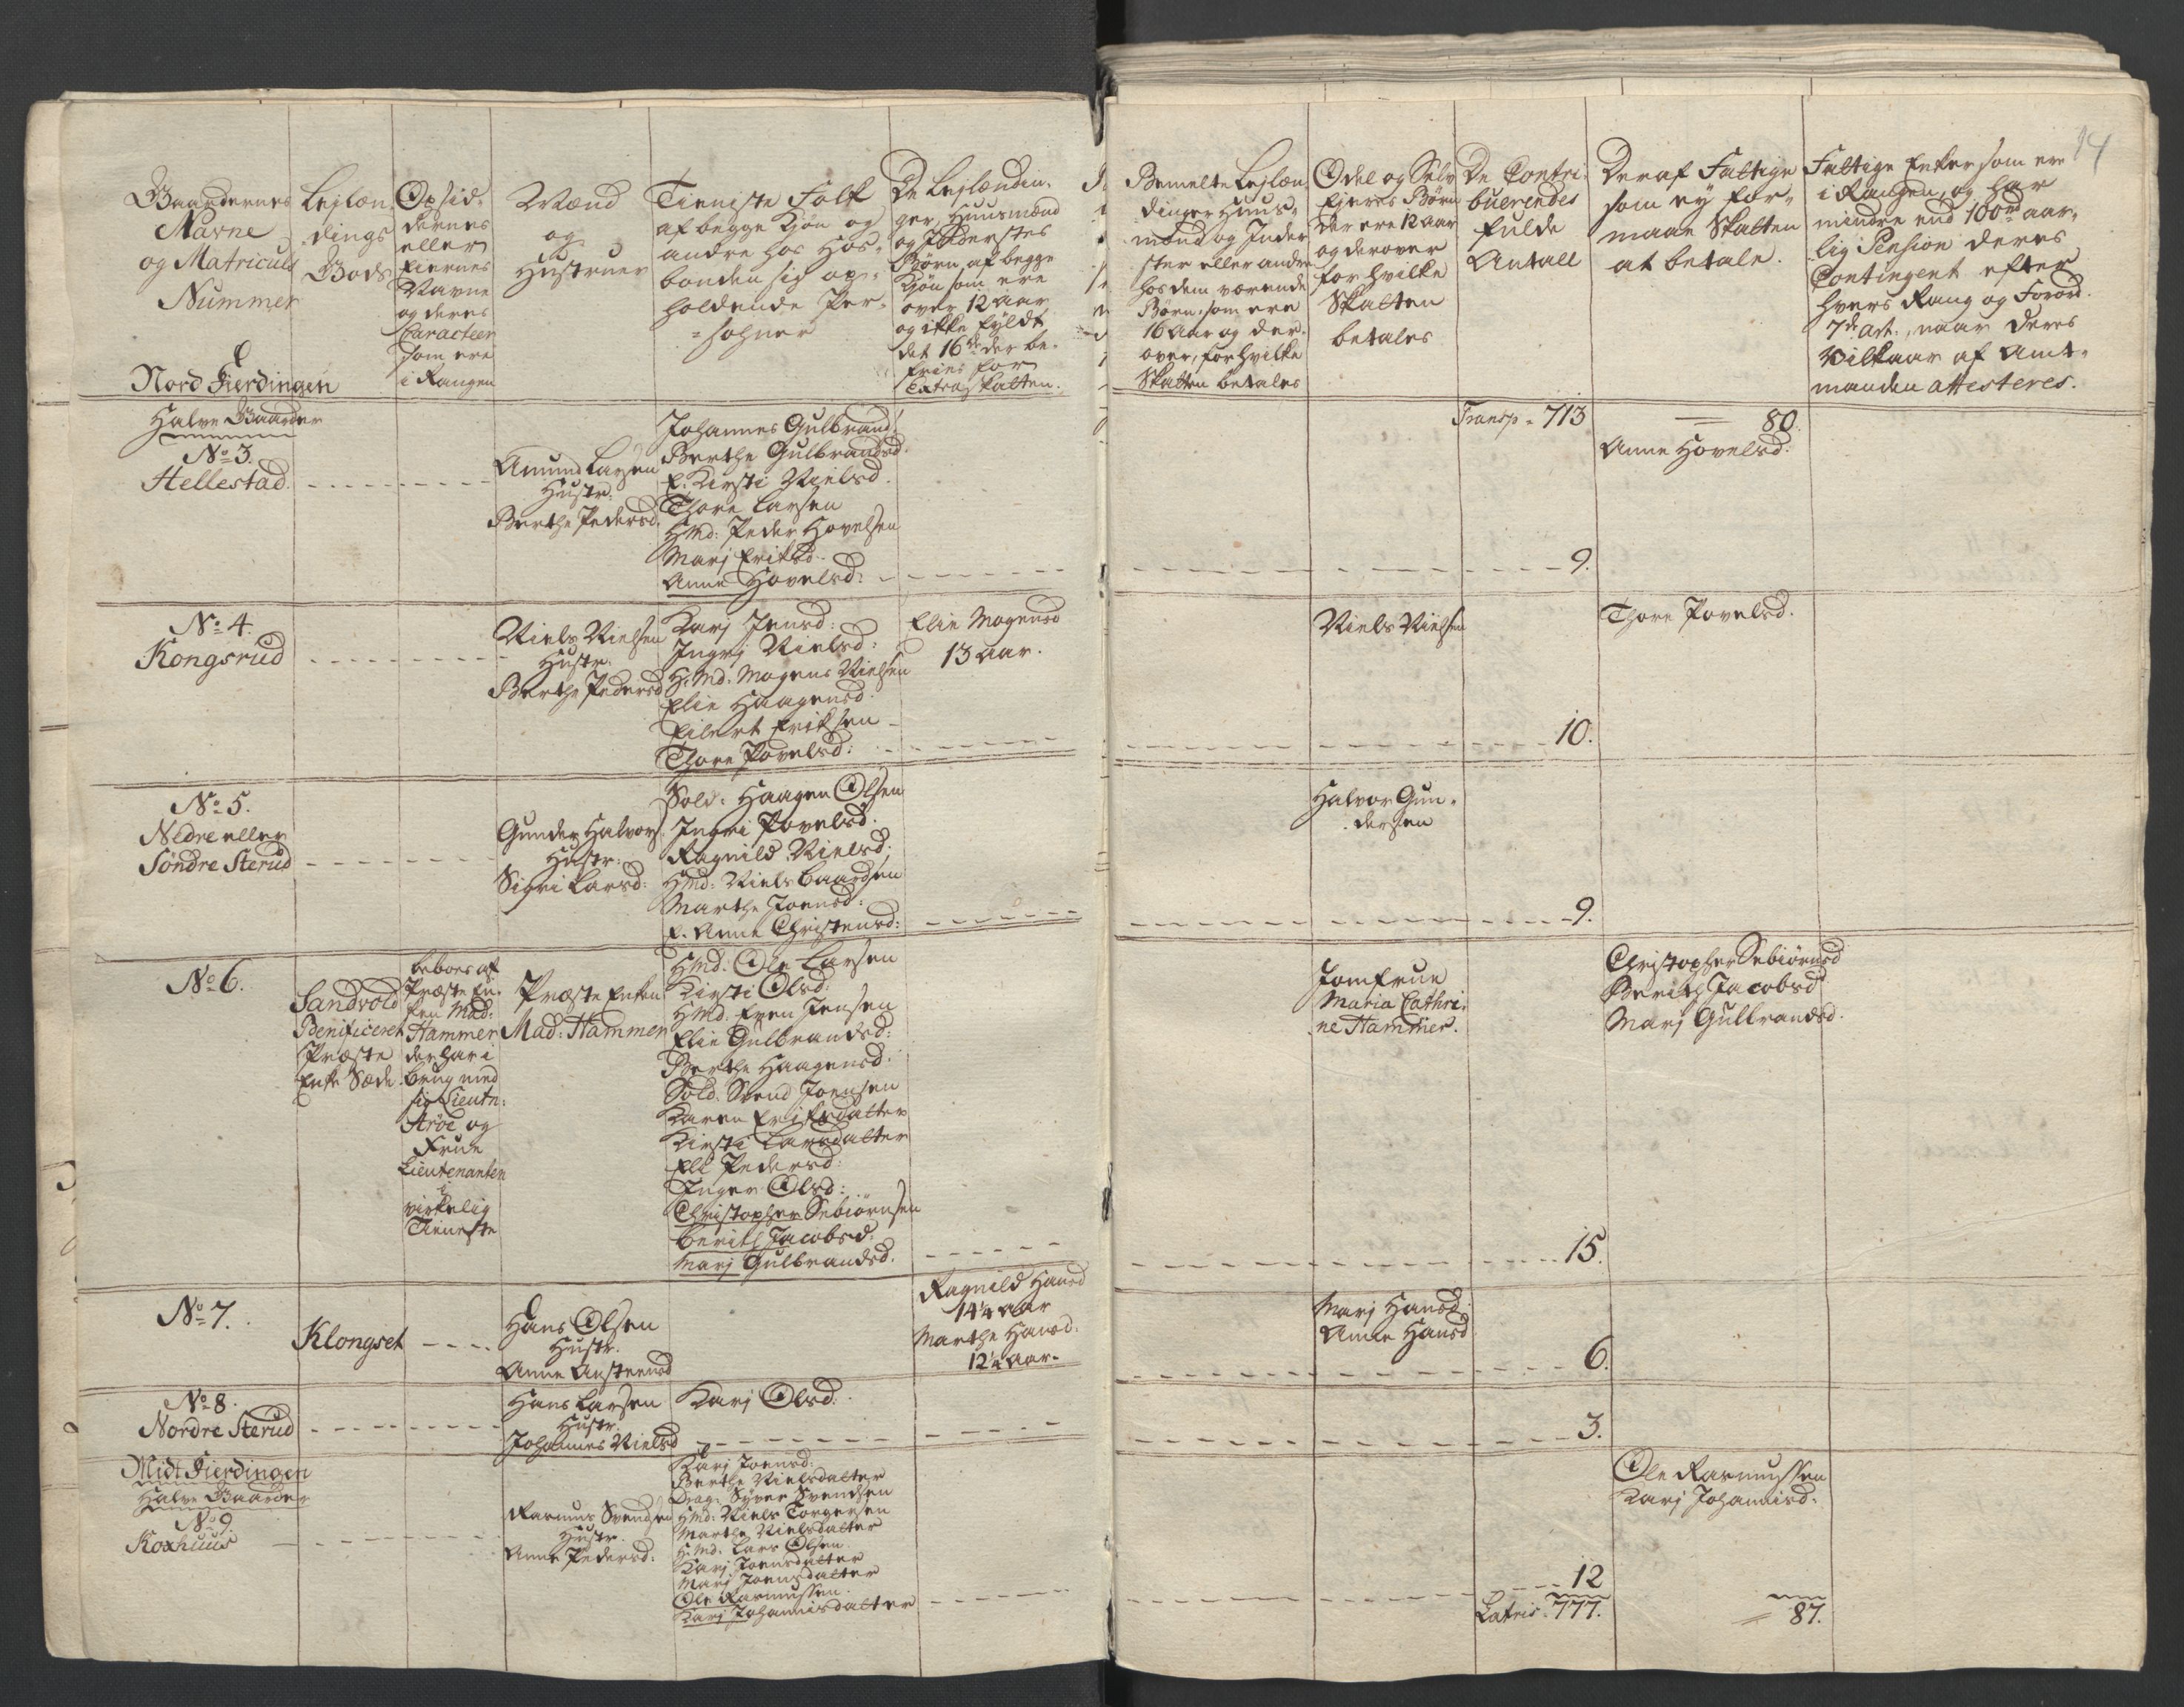 14
Gaardernes
Navne
og Matriculs
Nummer
Nord Fierdingen
Lejlæn-
dings
Gods
Opsid-
dernes
eller
Eiernes
Navne
og deres
Caracteer
som ere
i Rangen
Mænd
og
Hustruer
Tieniste Folk
af begge Kjøn og
andre hos Hos-
bonden sig op-
holdende Per-
sohner
De Lejlændin-
ger, Huusmænd
og Inderstes
Børn af begge
Kjøn som ere
over 12 aar
og ikke fyldt
det 16de der be-
fries for
Extra Skatten.
Bemelte Lejlæn-
dinger Huus-
mænd og Inder
ster eller andre
hos dem værende
Børn, som ere
16 aar og der-
over, for hvilke
Skatten betales
Odel og Selv
Ejeres Børn
der ere 12 aar
og derover
for hvilke
Skatten
betales
De Contri-
buerendes
fulde
Antall
Deraf Fattige
som ey for-
maar Skatten
at betale.
Fattige Enker som ere
i Rangen, og har
mindre end 100rd aar-
lig Pension deres
Contingent efter
hvers Rang og Forord.
7de Art., naar deres
Vilkaar af Amt-
manden attesteres.
Transp = 713
80.
Halve Gaarder
No 3.
Hellestad.
Amund Larsen
Hustr:
Berthe Pedersd.
Johannes Gulbrand:
Berthe Gulbrandsd.
E. Kirsti Nielsd.
Thore Larsen
HMd: Peder Hovelsen
Marj Eriksd.
Anne Hovelsd:
9.
Anne Hovelsd:
No 4.
Kongsrud
Niels Nielsen
Hustr:
Berthe Pedersd
Karj Jensd:
Ingrj Nielsd:
H: Md: Mogens Nielsen
Elie Haagensd:
Eilert Eriksen
Thore Povelsd:
Elie Mogensd
13 aar.
Niels Nielsen
10.
Thore Povelsd.
No 5.
Nedre eller
Søndre Sterud
Gunder Halvors.
Hustr:
Sigri Larsd:
Sold: Haagen Olsen
Ingri Povelsd.
Ragnild Nielsd:
HMd: Niels Baardsen
Marthe Joensd:
E. Anne Christensd:
Halvor Gun-
dersen
9.
No 6.
Sandvold
Benificeret
Præste
Enke Sæde.
beboes af
Præste En-
ken Mad:
Hammer
der har i
brug med
sig Lieutn:
Strøe og
Frue
Lieutenanten
i
virkelig
Tieneste
Præste Enken
Mad: Hammer
HMd: Ole Larsen
Kirsti Olsd:
HMd: Even Jensen
Elie Gulbrandsd:
Berthe Haagensd:
Sold. Svend Joensen
Karen Eriksdatter
Kirsti Larsdatter
Eli Pedersd:
Inger Olsd:
Christopher Sebiørnsen
Berith Jacobsd:
Marj Gulbrandsd.
Jomfrue
Maria Cathri-
ne Hammer.
15.
Christopher Sebiørnsd
Berith Jacobsd
Marj Gulbrandsd.
No 7.
Klongset
Hans Olsen
Hustr.
Anne Austeensd
Ragnild Hansd
14 1/4 Aar
Marthe Hansd:
12 1/4 Aar.
Marj Hansd:
Anne Hansd
6.
No 8.
Nordre Sterud
Hans Larsen
Hustr.
Johannes Nielsd
Karj Olsd:
3.
Midt Fierdingen
Halve Gaarder
No 9.
Koxhuus
Rasmus Svendsen
Hustr.
Anne Pedersd:
Karj Joensd:
Berthe Nielsdatter
Drag: Syver Svendsen
HMd: Niels Torgersen
Marthe Nielsdatter
H: Md: Lars Olsen
Karj Joensdatter
Marj Joensdatter
Ole Rasmussen.
Karj Johannisdatter
Ole Rasmussen
Karj Johannisd:
12
Latris 777.
87.